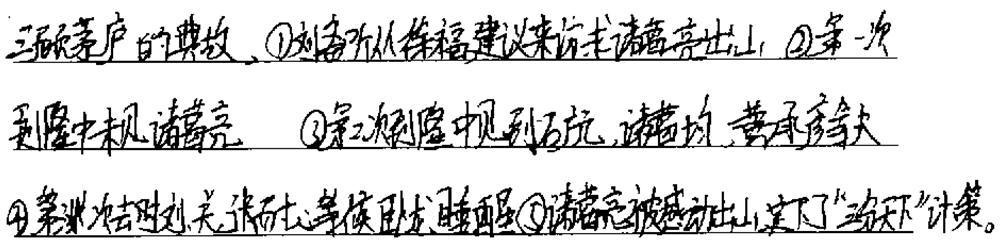 三顾茅庐的典故、①刘备听从徐福建议来访求诸葛亮出山,②第一次
到隆中未见诸葛亮 ③第2次到隆中见到石广元、诸葛均、黄承彦拿大
④第三次去时刘、关、张而士、等候卧龙睡醒⑤诸葛亮被感动出山,定下了“三分天下”计策。